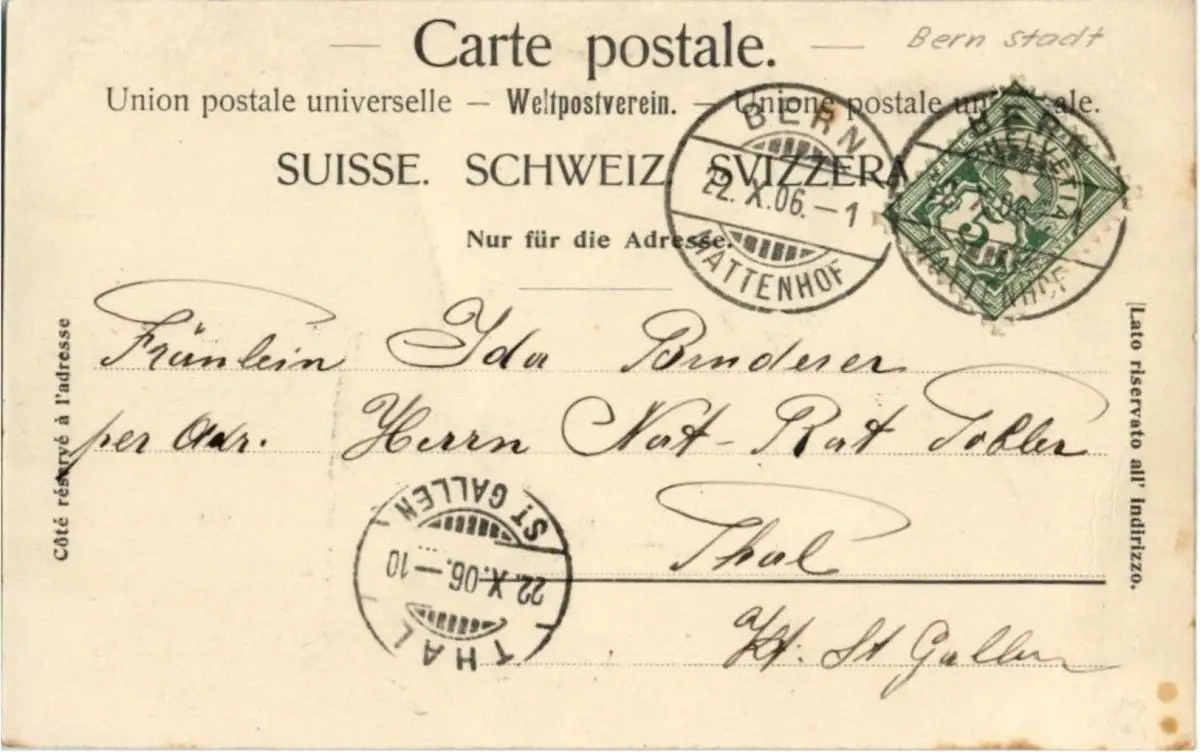 Bern stadt
Carte postale.
Union postale universelle – Weltpostverein. – Unione postale un ale.
SUISSE. SCHWEIZ. SVIZZERA
Nur für die Adresse.
BERN
22.X.06.–1
MATTENHOF
BERN
X.06.
MATTENHOF
HELVETIA
5
Côté réservé à l'adresse
[Lato riservato all' indirizzo.
Fräulein Ida Binderer
per Adr. Herrn Nat-Rat Tobler
Thal
Kt. St Gallen
ST GALLEN
22.X.06.–10
THAL